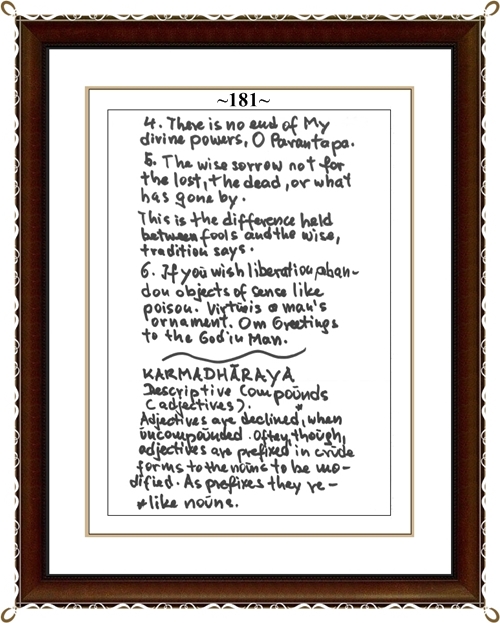 ~181~
4. There is no end of My
divine powers, O Parantapa.
5. The wise sorrow not for
the lost, the dead, or what
has gone by.
This is the difference held
between fools and the wise,
tradition says.
6. If you wish liberation, aban-
don objects of sense like
poison. Virtue is a man's
ornament. Om Greetings
to the God in Man.
KARMADHĀRAYA
Descriptive Compounds
(adjectives).
Adjectives are declined,* when
uncompounded. Often, though,
adjectives are prefixed in crude
forms to the nouns to be mo-
dified. As prefixes they re-
*like nouns.